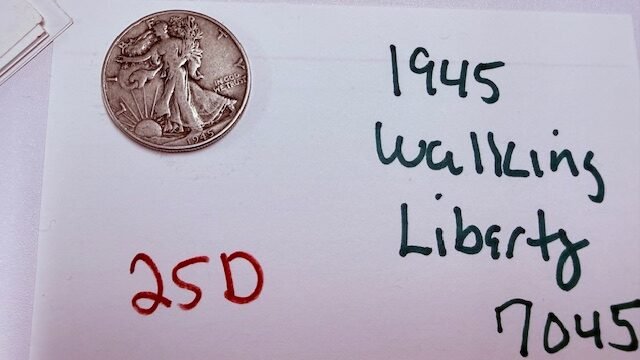 LIBERTY
IN GOD
WE TRUST
1945
1945
Walking
Liberty
7045
25D